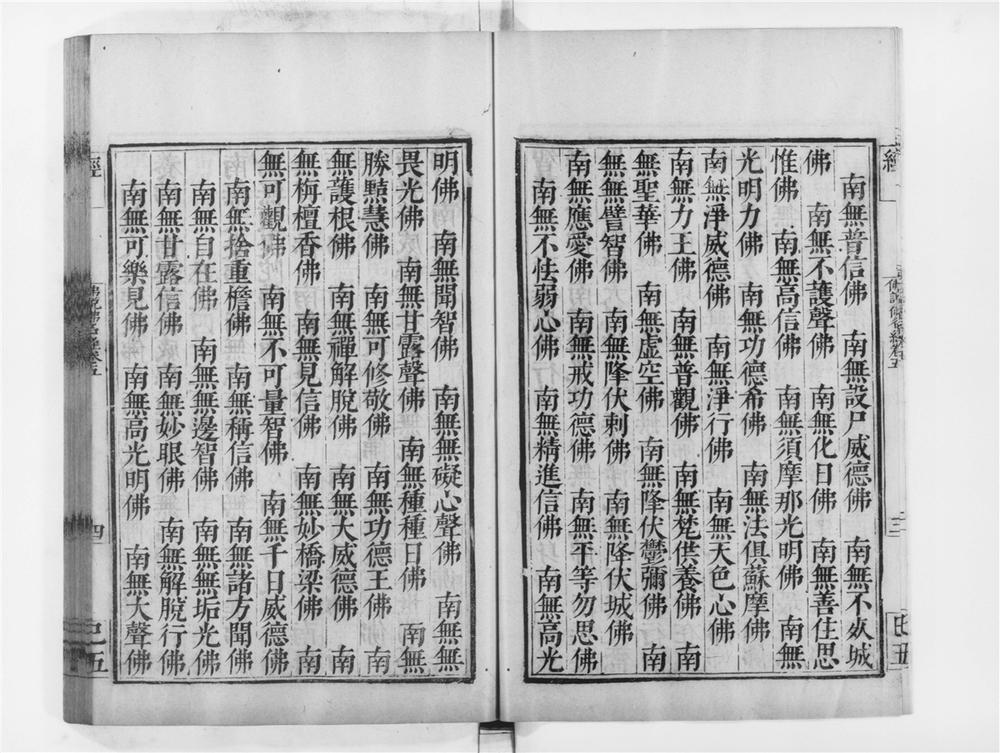 南無普信佛　南無設尸威德佛　南無不𡚶城
佛　南無不護聲佛　南無化日佛　南無善住思
惟佛　南無高信佛　南無須摩那光明佛　南無
光明力佛　南無功德希佛　南無法俱蘇摩佛
南無淨威德佛　南無淨行佛　南無天色心佛
南無力王佛　南無普觀佛　南無梵供養佛　南
無聖華佛　南無虛空佛　南無降伏鬱彌佛　南
無無譬智佛　南無降伏刺佛　南無降伏城佛
南無應愛佛　南無戒功德佛　南無平等勿思佛
南無不怯弱心佛　南無精進信佛　南無高光
明佛　南無聞智佛　南無無礙心聲佛　南無無
畏光佛　南無甘露聲佛　南無種種日佛　南無
勝黠慧佛　南無可修敬佛　南無功德王佛　南
無護根佛　南無禪解脫佛　南無大威德佛　南
無栴檀香佛　南無見信佛　南無妙橋梁佛　南
無可觀佛　南無不可量智佛　南無千日威德佛
南無捨重檐佛　南無稱信佛　南無諸方聞佛
南無自在佛　南無無邊智佛　南無無垢光佛
南無甘露信佛　南無妙眼佛　南無解脫行佛
南無可樂見佛　南無高光明佛　南無大聲佛
經
佛說佛名經卷五
四
巳五